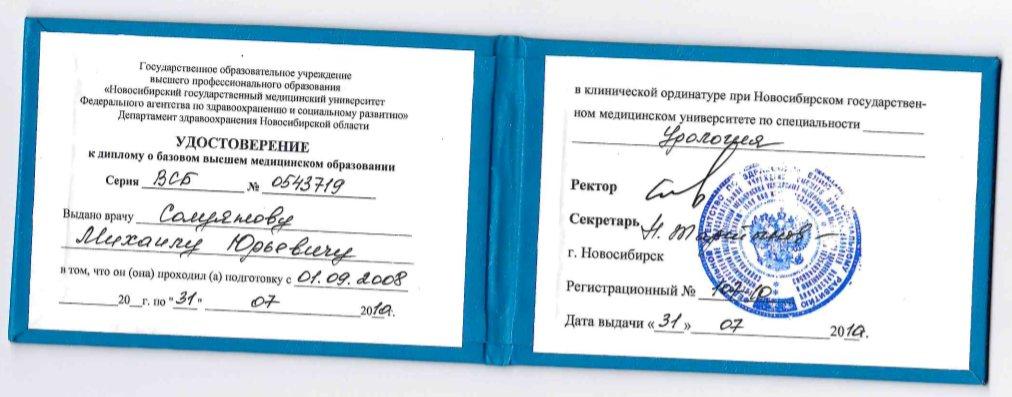 Государственное образовательное учреждение
высшего профессионального образования
«Новосибирский государственный медицинский университет
Федерального агентства по здравоохранению и социальному развитию»
Департамент здравоохранения Новосибирской области
УДОСТОВЕРЕНИЕ
к диплому о базовом высшем медицинском образовании
Серия ВСБ № 0543719
Выдано врачу Солуянову
Михаилу Юрьевичу
в том, что он (она) проходил (а) подготовку с 01.09.2008
20__г. по "31" 07 2010г.
в клинической ординатуре при Новосибирском государствен-
ном медицинском университете по специальности
Урология
Ректор
Секретарь
г. Новосибирск
Регистрационный №
Дата выдачи «31» 07 2010г.